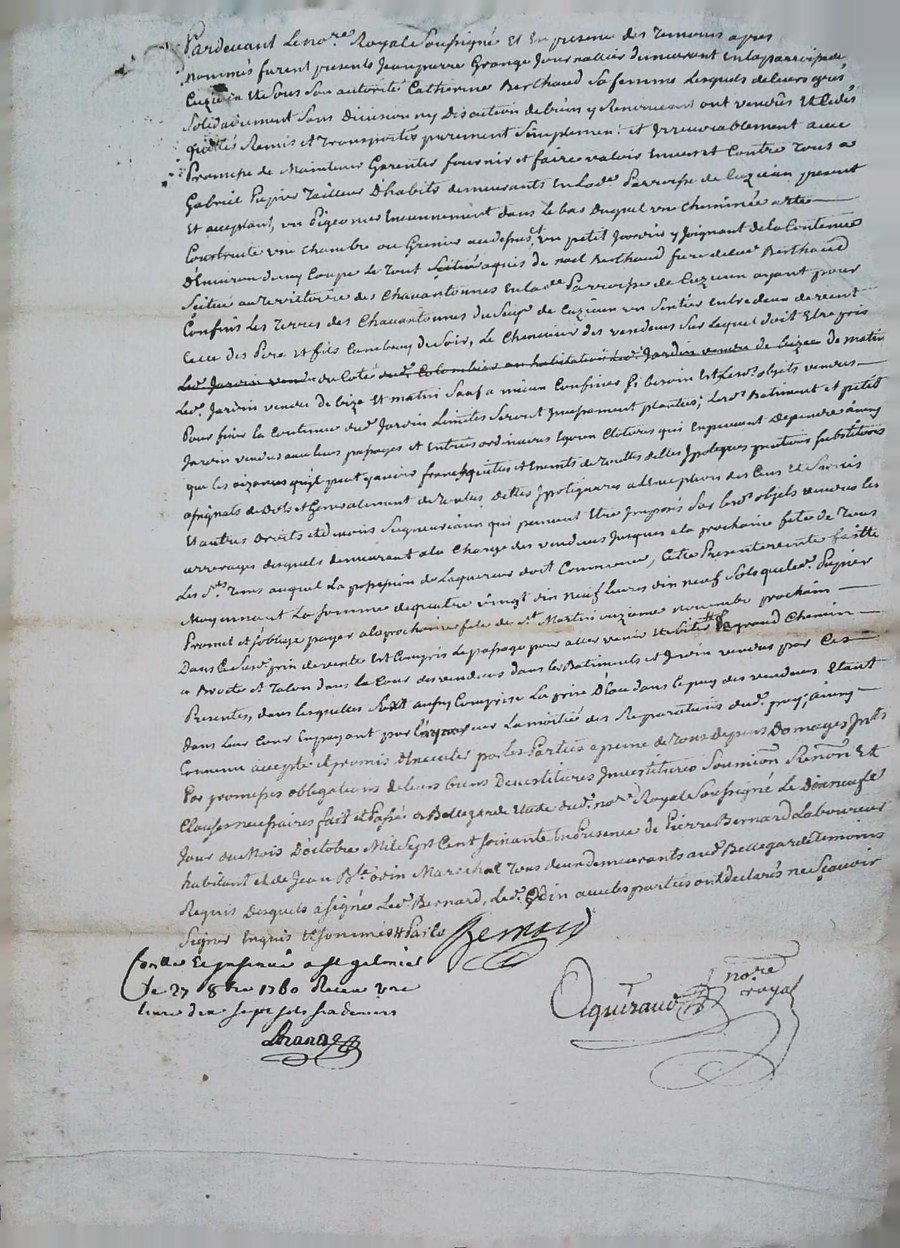 Pardevant Le nore Royal Soussigné Et En presence des Temoins apres
nommés furent presents Jeanpierre Grange Journallier demeurant En la parroisse de
Cuzieu Et de Sous Son autorité Catherine Berthaud Sa femme Lesquels de leurs grés
Solidairement Sans Division ny Discution de biens y Renonceant ont vendus Et Cedés
quittés Remis et Transportés purement Simplement et Irrevocablement avec
Promesse de Maintenir Garentir fournir et faire valoir Envers et Contre Tous a
Gabriel Pupier Tailleur D'habits demeurants En Lad. Parroisse de Cuzieu present
Et acceptant, un Pigeonier dans le bas Duquel une Cheminée
Construite une chambre ou Grenier au dessus et un petit Jardin y Joignant de la Contenue
D'Environ demy Coupe Le Tout aquis de noel Berthaud frere de lad. Berthaud
Scitué au Territoire des Chavantonnes En lad. Parroisse de Cuzieu ayant pour
Confins Les Terres des Chavantonnes du Seigr de Cuzieu un Sentier Entre deux de vent
Celle des Pere et fils de Soir, Le des vendeurs Sur Lequel doit Etre pris
Led. Jardin vendu du Coté dud. Colombier ou habitation Led. Jardin vendu de bize de matin
Led. Jardin vendu de bize Et matin Sauf a mieux Confiner Si besoin Est Lesd. objets vendus
Pour fixer la Contenue dud. Jardin Limites Seront plantées; Lesd. Batiment et petit
Jardin vendus avec leurs passages et Entrées ordinaires Clotures qui En peuvent Dependre ainsy
que les aizances francs quittes et Exempts de Touttes dettes Ipoteques substitutions
et Generalement de Toutes dettes Ipotiquaires a l'Exception des Cens Et Servis
Et autres Droits et devoirs Seigneuriaux qui peuvent Etre Imposés Sur lesd. objets vendus les
arrerages desquels demeurant a la Charge des vendeurs Jusques a la prochaine fete de Tous
Les Sts Tems auquel La possession de Laquereur doit Commencer, Cette Presente vente faitte
Moyennant La Somme de quatre vingt dix neuf livres dix neuf Sols que led. Pupier
Promet et Soblige payer a la prochaine fete de St Martin onzieme novembre prochain
Dans Ce Susd. prix de vente Est Compris Le passage pour aller venir grand Chemin
a Boote et Talon dans la Cour des vendeurs dans les Batiments et Jardin vendus par Ces
Presentes, dans lesquelles aussy Comprise La prise D'Eau dans le puy des vendeurs Etant
dans Leur Cour En payant par L'aquereur La moitié des Reparations dud. puy; ainsy
Convenu accepté et promis D'Executer par les Parties a peine de Tous Depens Domages Jnts
Par promesses obligations de leurs biens Devestitures Investitures Soumion Renon Et
Clauses necessaires fait et Passé a Bellegarde Etude dud. nore Royal Soussigné Le Dixneufe
Jour du Mois Doctobre Mil Sept Cent Soixante En Presence de Pierre Bernard Laboureur
habitant et de Jean Bte odin Marechal Tous deux demeurants aud. Bellegarde Temoins
Requis Desquels a Signé Led. Bernard, Led. Odin avec les parties ont declarés ne Sçavoir
Signer Enquis Et Sommés
Bernard
Conllé a st galmier
Le 27 8bre 1760 Receu une
livre dix sept sols six deniers
Aguiraud nore
royal